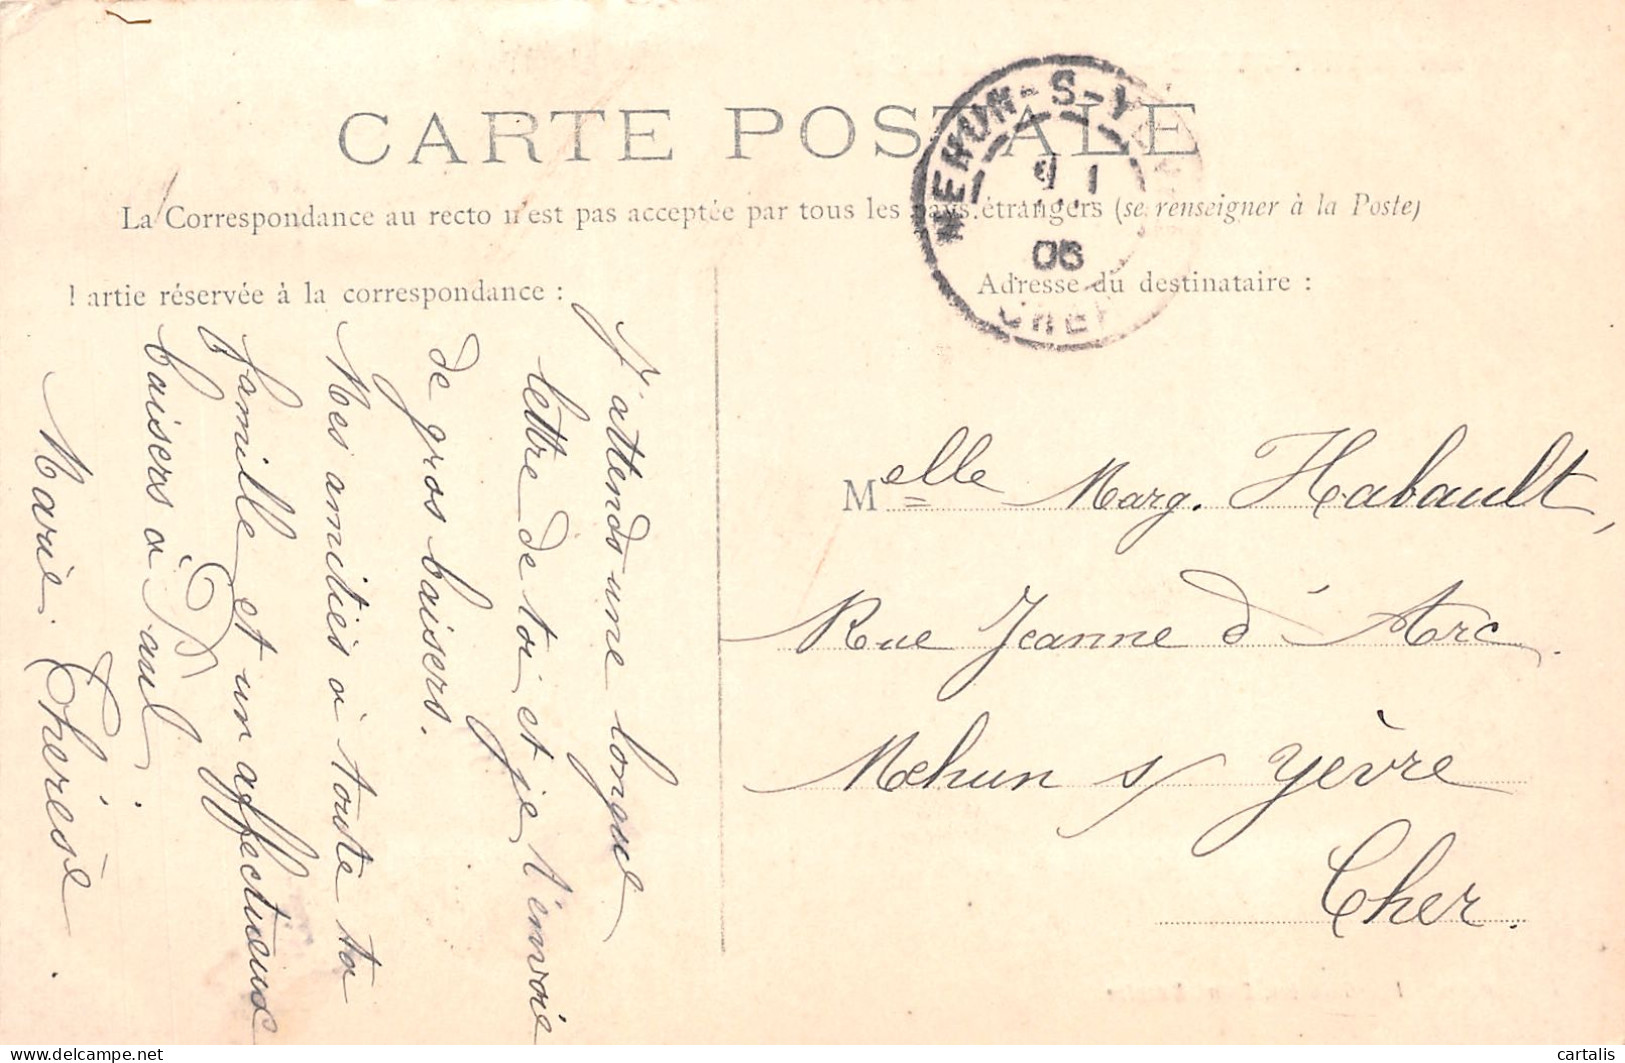 CARTE POSTALE
La Correspondance au recto n'est pas acceptée par tous les pays étrangers (se renseigner à la Poste)
Partie réservée à la correspondance :
Adresse du destinataire :
MEHUN-S-Y
9 1
06
CHER
J'attends une longue
lettre de toi et je t'envoie
de gros baisers.
Mes amitiés à toute ta
famille et un affectueux
baisers à Paul.
Marie Thérèse.
Melle Marg. Habault,
Rue Jeanne d'Arc.
Mehun s/ Yèvre
Cher.
cartalis